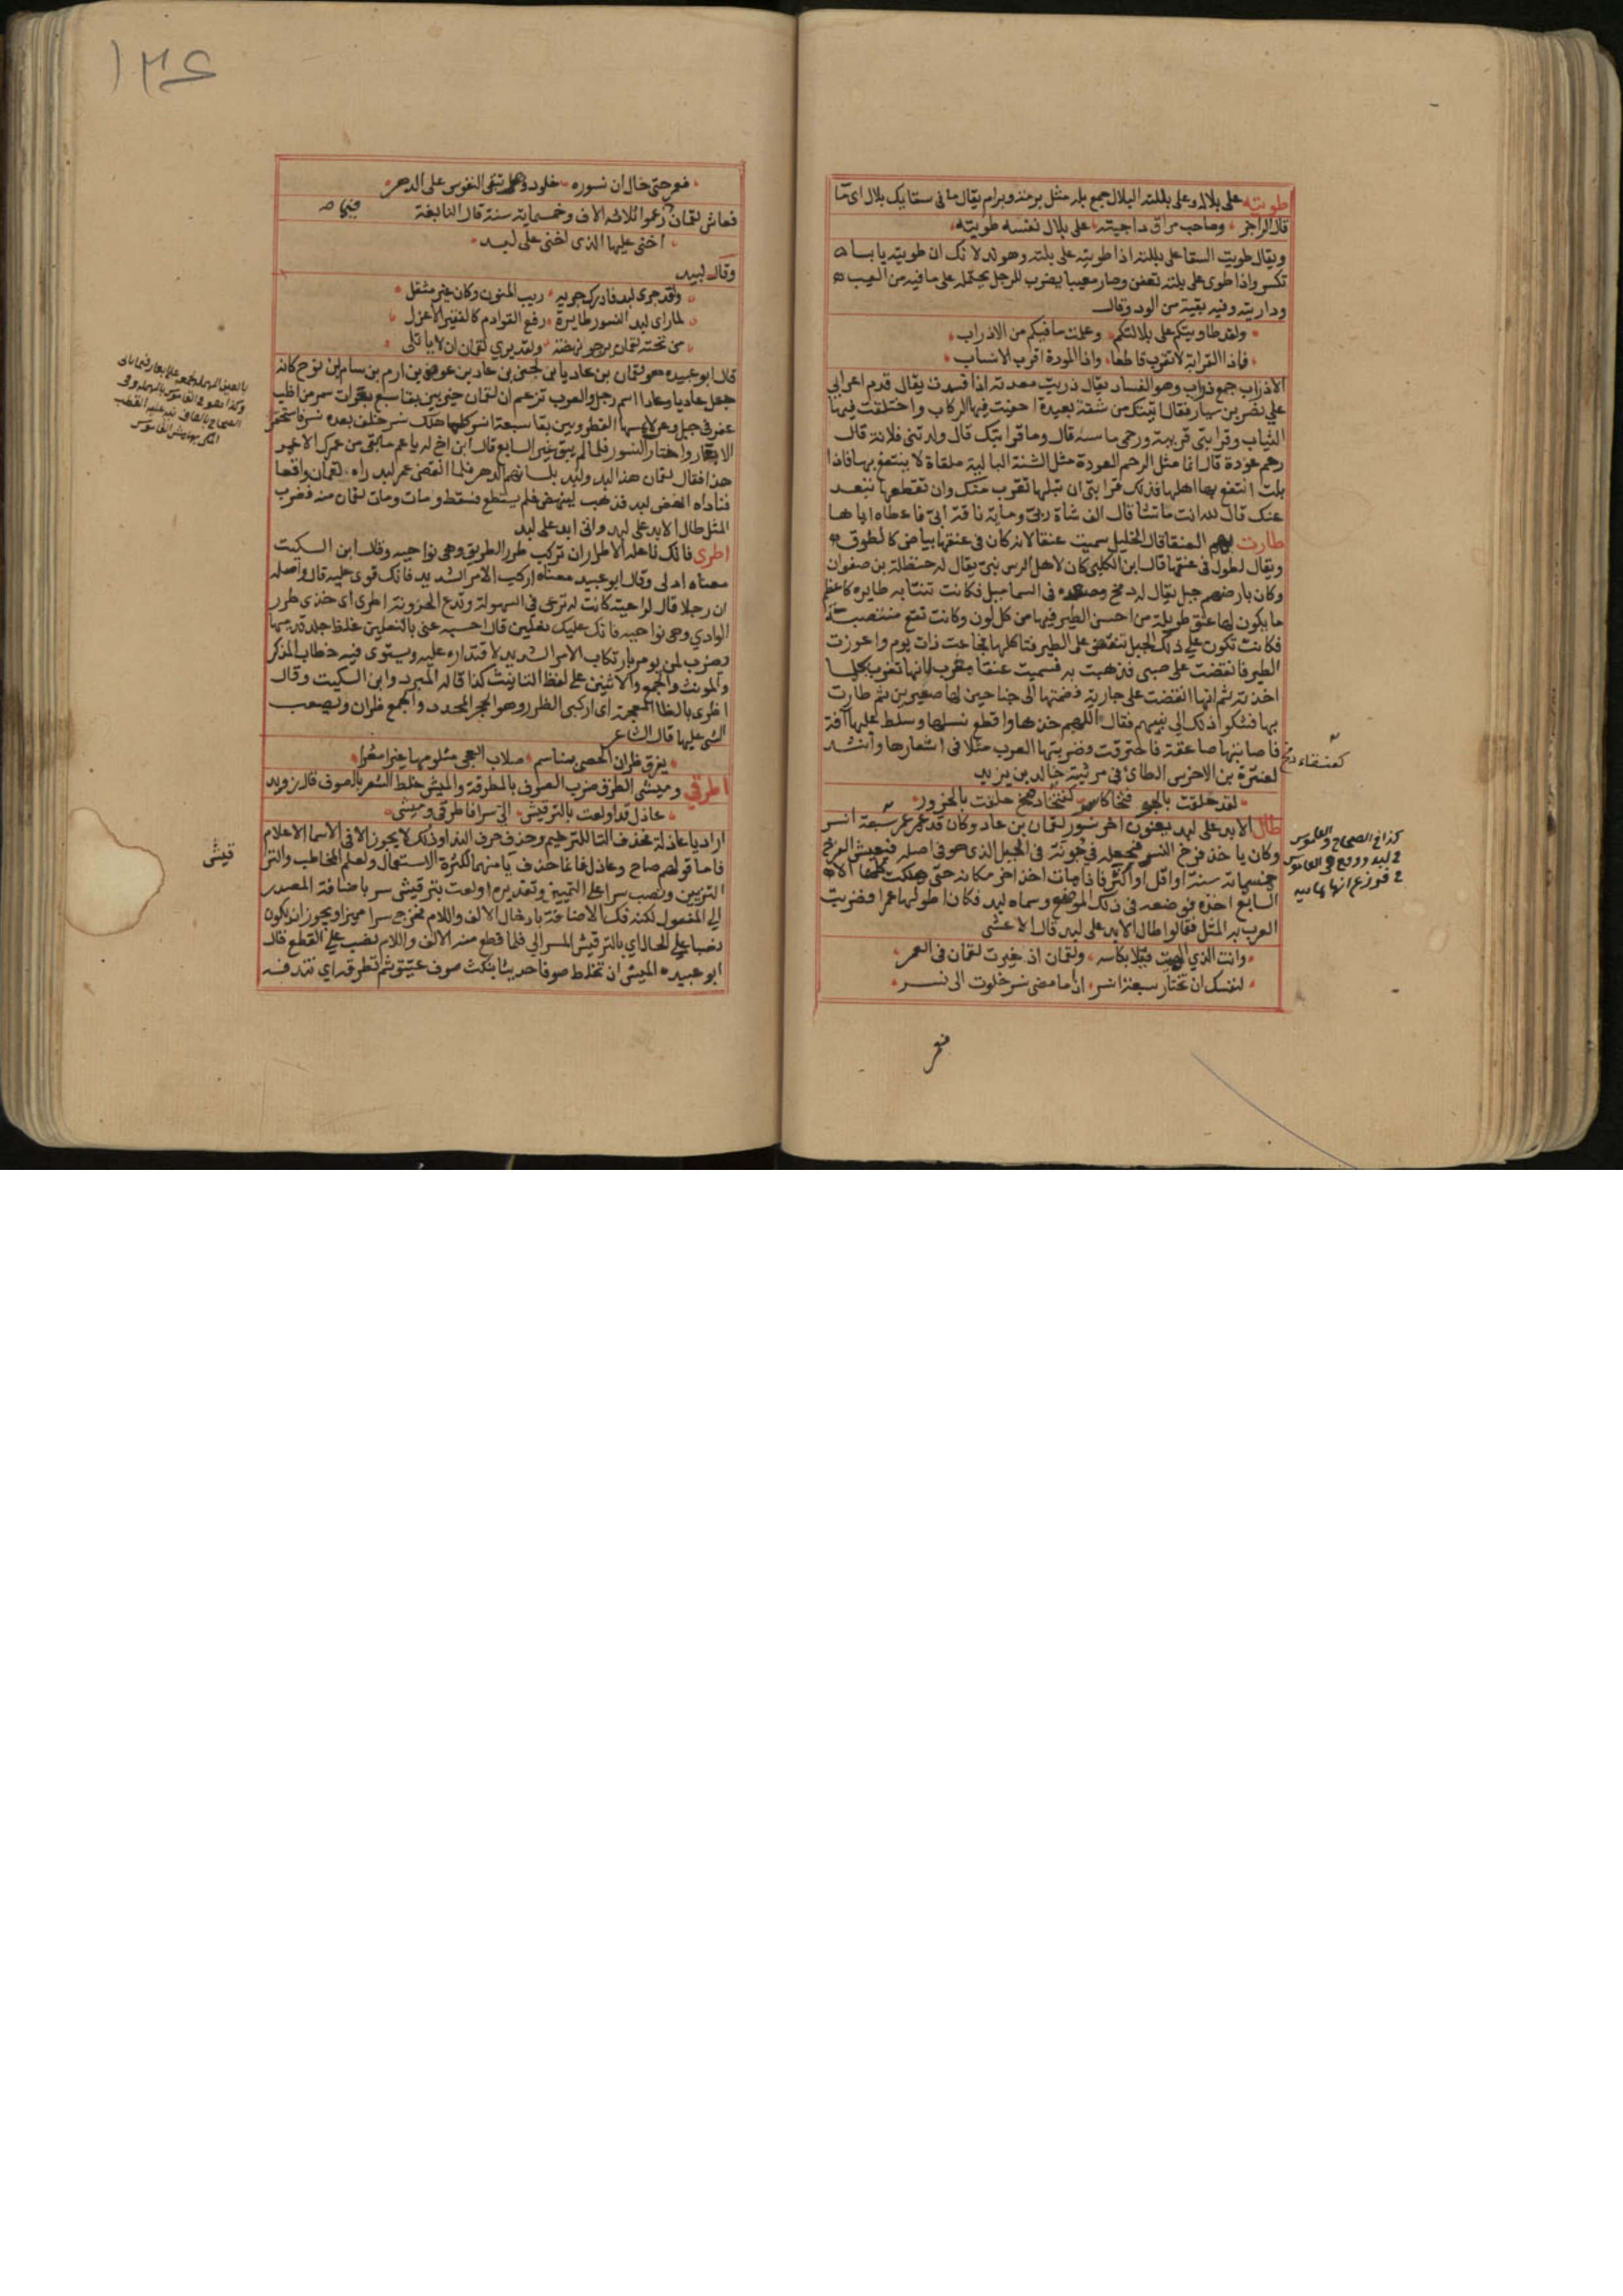 طويته على بلاله وعلى بللته البلال جمع بلة مثل برمة وبرام يقال ما فى سقايك بلال اى ما
قال الراجز وصاحب مرافق داجيته على بلال نفسه طويته
ويقال طويت السقا على بللته اذا طويته على بلته وهو ند لانك ان طويته يابسا
تكسر واذا طوى على بلته تعفن وصار معيبا يضرب للرجل يحتمله على ما فيه من العيب
وداريته وفيه بقية من الود وقال
ولقد طويتكم على بللاتكم وعلمت ما فيكم من الاذراب
فاذا القرابة لا تقرب قاطعا واذا المودة اقرب الانساب
الاذراب جمع ذراب وهو الفساد يقال ذربت معدته اذا فسدت يقال قدم اعرابي
على نصر بن سيار فقال اتيتك من شقة بعيدة احفيت فيها الركاب واخلقت فيها
الثياب وقرابتى قريبة ورحمى ماسة قال وما قرابتك قال ولدتنى فلانة قال
رحم عودة قال انما مثل الرحم العودة مثل الشنة البالية ملقاة لا ينتفع بها فاذا
بلت انتفع بها اهلها فذلك قرابتى ان تبلها تقرب منك وان تقطعها تبعد
عنك قال لله انت ما تشا قال الف شاة ربى ومايه ناقة ابى فاعطاه اياها
طارت بهم العنقا قال الخليل سميت عنقا لانه كان فى عنقها بياض كالطوق
ويقال لطول فى عنقها قال ابن الكلبى كان لاهل الرس نبى يقال له حنظلة بن صفوان
وكان بارضهم جبل يقال له دمخ ومصعده فى السما ميل فكانت تنتابه طايره كاعظم
ما يكون لها عنق طويلة من احسن الطير فيها من كل لون وكانت تقع منتصبة
فكانت تكون على ذلك الجبل تنقض على الطير فتاكلها فجاعت ذات يوم واعوزت
الطير فانقضت على صبى فذهبت به فسميت عنقا مغرب لانها تغرب بكل ما
اخذته ثم انها انقضت على جارية فضمتها الى جناحين لها صغيرين ثم طارت
بها فشكوا ذلك الى نبيهم فقال اللهم خذها واقطع نسلها وسلط عليها آفة
فاصابتها صاعقة فاحترقت وضربتها العرب مثلا فى اشعارها وانشد
لعنترة بن الاخرس الطاى فى مرثية خالد بن يزيد
لقد حلقت بالجو فتخا كاسر كفتخا دمخ حلقت بالحزور
كعنقاء دمخ
طال الابد على لبد يعنون اخر نسور لقمان بن عاد وكان قد عمر عمر سبعة انسر
وكان ياخذ فرخ النسر فيجعله فى جوبة فى الجبل الذى هو فى اصله فيعيش الفرخ
خمسمائة سنة او اقل او اكثر فاذا مات اخذ اخر مكانه حتى هلكت كلها الا
السابع اخذه فوضعه فى ذلك الموضع وسماه لبد فكان اطولها عمرا فضربت
العرب به المثل فقالوا طال الابد على لبد قال الاعشى
وانت الذي الهيت قيلا بكاسه ولقمان اذ خيرت لقمان فى العمر
لنفسك ان تختار سبعة انسر اذا ما مضى نسر خلوت الى نسر
كذا فى الصحاح والقاموس
فعمر
فعمر حتى خال ان نسوره خلود وهل تبقى النفوس على الدهر
فعاش لقمان زعموا ثلاثه الاف وخمسمايه سنة قال النابغة
اخنى عليها الذى اخنى على لبد
وقال لبيد
ولقد جرى لبد فادرك جريه ريب المنون وكان غير مثقل
لما راى لبد النسور تطايرت رفع القوادم كالفقير الاعزل
من تحته لقمان يرجو نهضه ولقد يرى لقمان ان لا ياتلى
قال ابو عبيده هو لقمان بن عاديا بن لجين بن عاد بن عوص بن ارم بن سام بن نوح كانه
جعل عاديا وعادا اسم رجل والعرب تزعم ان لقمان خير بين بقا سبع بعرات سمر من اظب
عفر فى جبل وعر لا يمسها القطر وبين بقا سبعة انسر كلما هلك نسر خلف بعده نسر فاستحقر
الابعار واختار النسور فلما لم يبق غير السابع قال ابن اخ له يا عم ما بقى من عمرك الا عمر
هذا فقال لقمان هذا لبد ولبد بلسانهم الدهر فلما انقضى عمر لبد راه لقمان واقعا
فناداه انهض لبد فذهب لينهض فلم يستطع فسقط ومات ومات لقمان معه فضرب
المثل طال الابد على لبد واتى ابد على لبد
اطرى فانك ناعله الاطرار ان تركب طرر الطريق وهى نواحيه وقال ابن السكيت
معناه ادلى وقال ابو عبيد معناه اركب الامر الشديد فانك قوى عليه قال واصله
ان رجلا قال لراعيته كانت له ترعى فى السهولة وتدع الحزونة اطرى اى خذى طرر
الوادي وهى نواحيه فانك عليك نعلين قال احسبه عنى بالنعلين غلظ جلد قدميها
يضرب لمن يومر بارتكاب الامر الشديد لاقتداره عليه ويستوى فيه خطاب المذكر
والمونث والجمع والاثنين على لفظ التانيث كذا قاله المبرد وابن السكيت وقال
اظرى بالظا المعجمة اى اركبى الظرر وهو الحجر المحدد والجمع ظران ويصعب
المشى عليها قال الشاعر
يفرق ظران الحصى بمناسم صلاب العجى مثلومها غير امعرا
اطرقي وميشى الطرق ضرب الصوف بالمطرقة والميش خلط الشعر بالصوف قال روبة
عاذل قد اولعت بالترقيش الى سرا فاطرقى وميشى
اراد يا عاذلة فحذف التا للترخيم وحذف حرف الندا وذلك لا يجوز الا فى الاسما الاعلام
فاما قولهم صاح وعاذل فانما حذف يا منهما لكثرة الاستعمال ولعلم المخاطب
التزيين ونصب سرا على التمييز وتقديره اولعت بترقيش سر باضافة المصدر
الى المفعول لكنه فك الاضافة بادخال الالف واللام فخرج سرا مميزا ويجوز ان يكون
نصبا على الحال اي بالترقيش المسر الى فلما قطع منه الالف واللام نصب على القطع قال
ابو عبيده الميش ان تخلط صوفا حديثا بنكث صوف عتيق ثم تطرقه اي تندفه
١٣٤